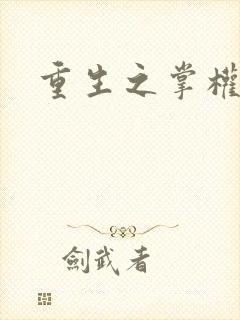 重生之掌權
劍武者